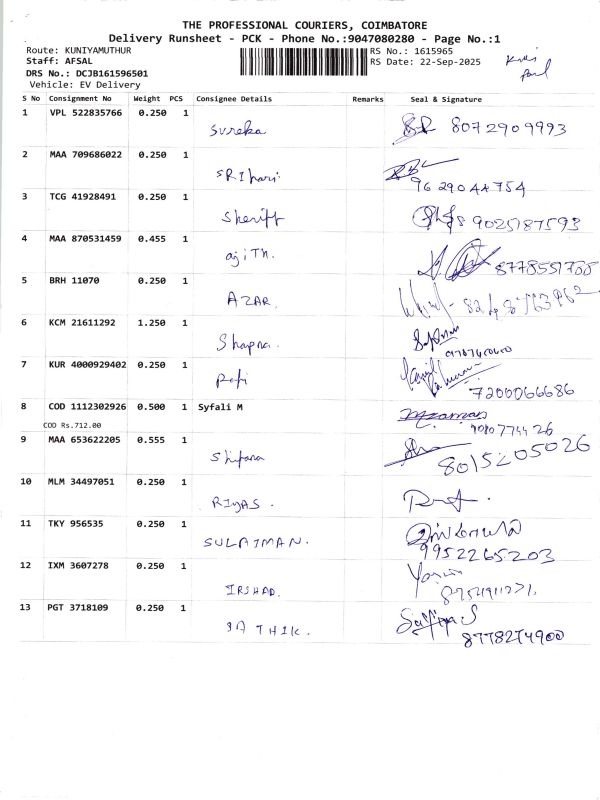 THE PROFESSIONAL COURIERS, COIMBATORE
Delivery Runsheet - PCK - Phone No.:9047080280 - Page No.:1
Route: KUNIYAMUTHUR RS No.: 1615965
Staff: AFSAL RS Date: 22-Sep-2025
DRS No.: DCJB161596501
Vehicle: EV Delivery
S No Consignment No Weight PCS Consignee Details Remarks Seal & Signature
1 VPL 522835766 0.250 1
Sureka 8072909993
2 MAA 709686022 0.250 1
SRIhari 9629044754
3 TCG 41928491 0.250 1
Sheriff 9025187593
4 MAA 870531459 0.455 1
ajiTh.
5 BRH 11070 0.250 1
AZAR.
6 KCM 21611292 1.250 1
7 KUR 4000929402 0.250 1
7200066686
8 COD 1112302926 0.500 1 Syfali M
COD Rs.712.00
9 MAA 653622205 0.555 1
8015205026
10 MLM 34497051 0.250 1
RIYAS.
11 TKY 956535 0.250 1
SULAIMAN. 9952265203
12 IXM 3607278 0.250 1
IRSHAD.
13 PGT 3718109 0.250 1
SATHIK. 8778274900